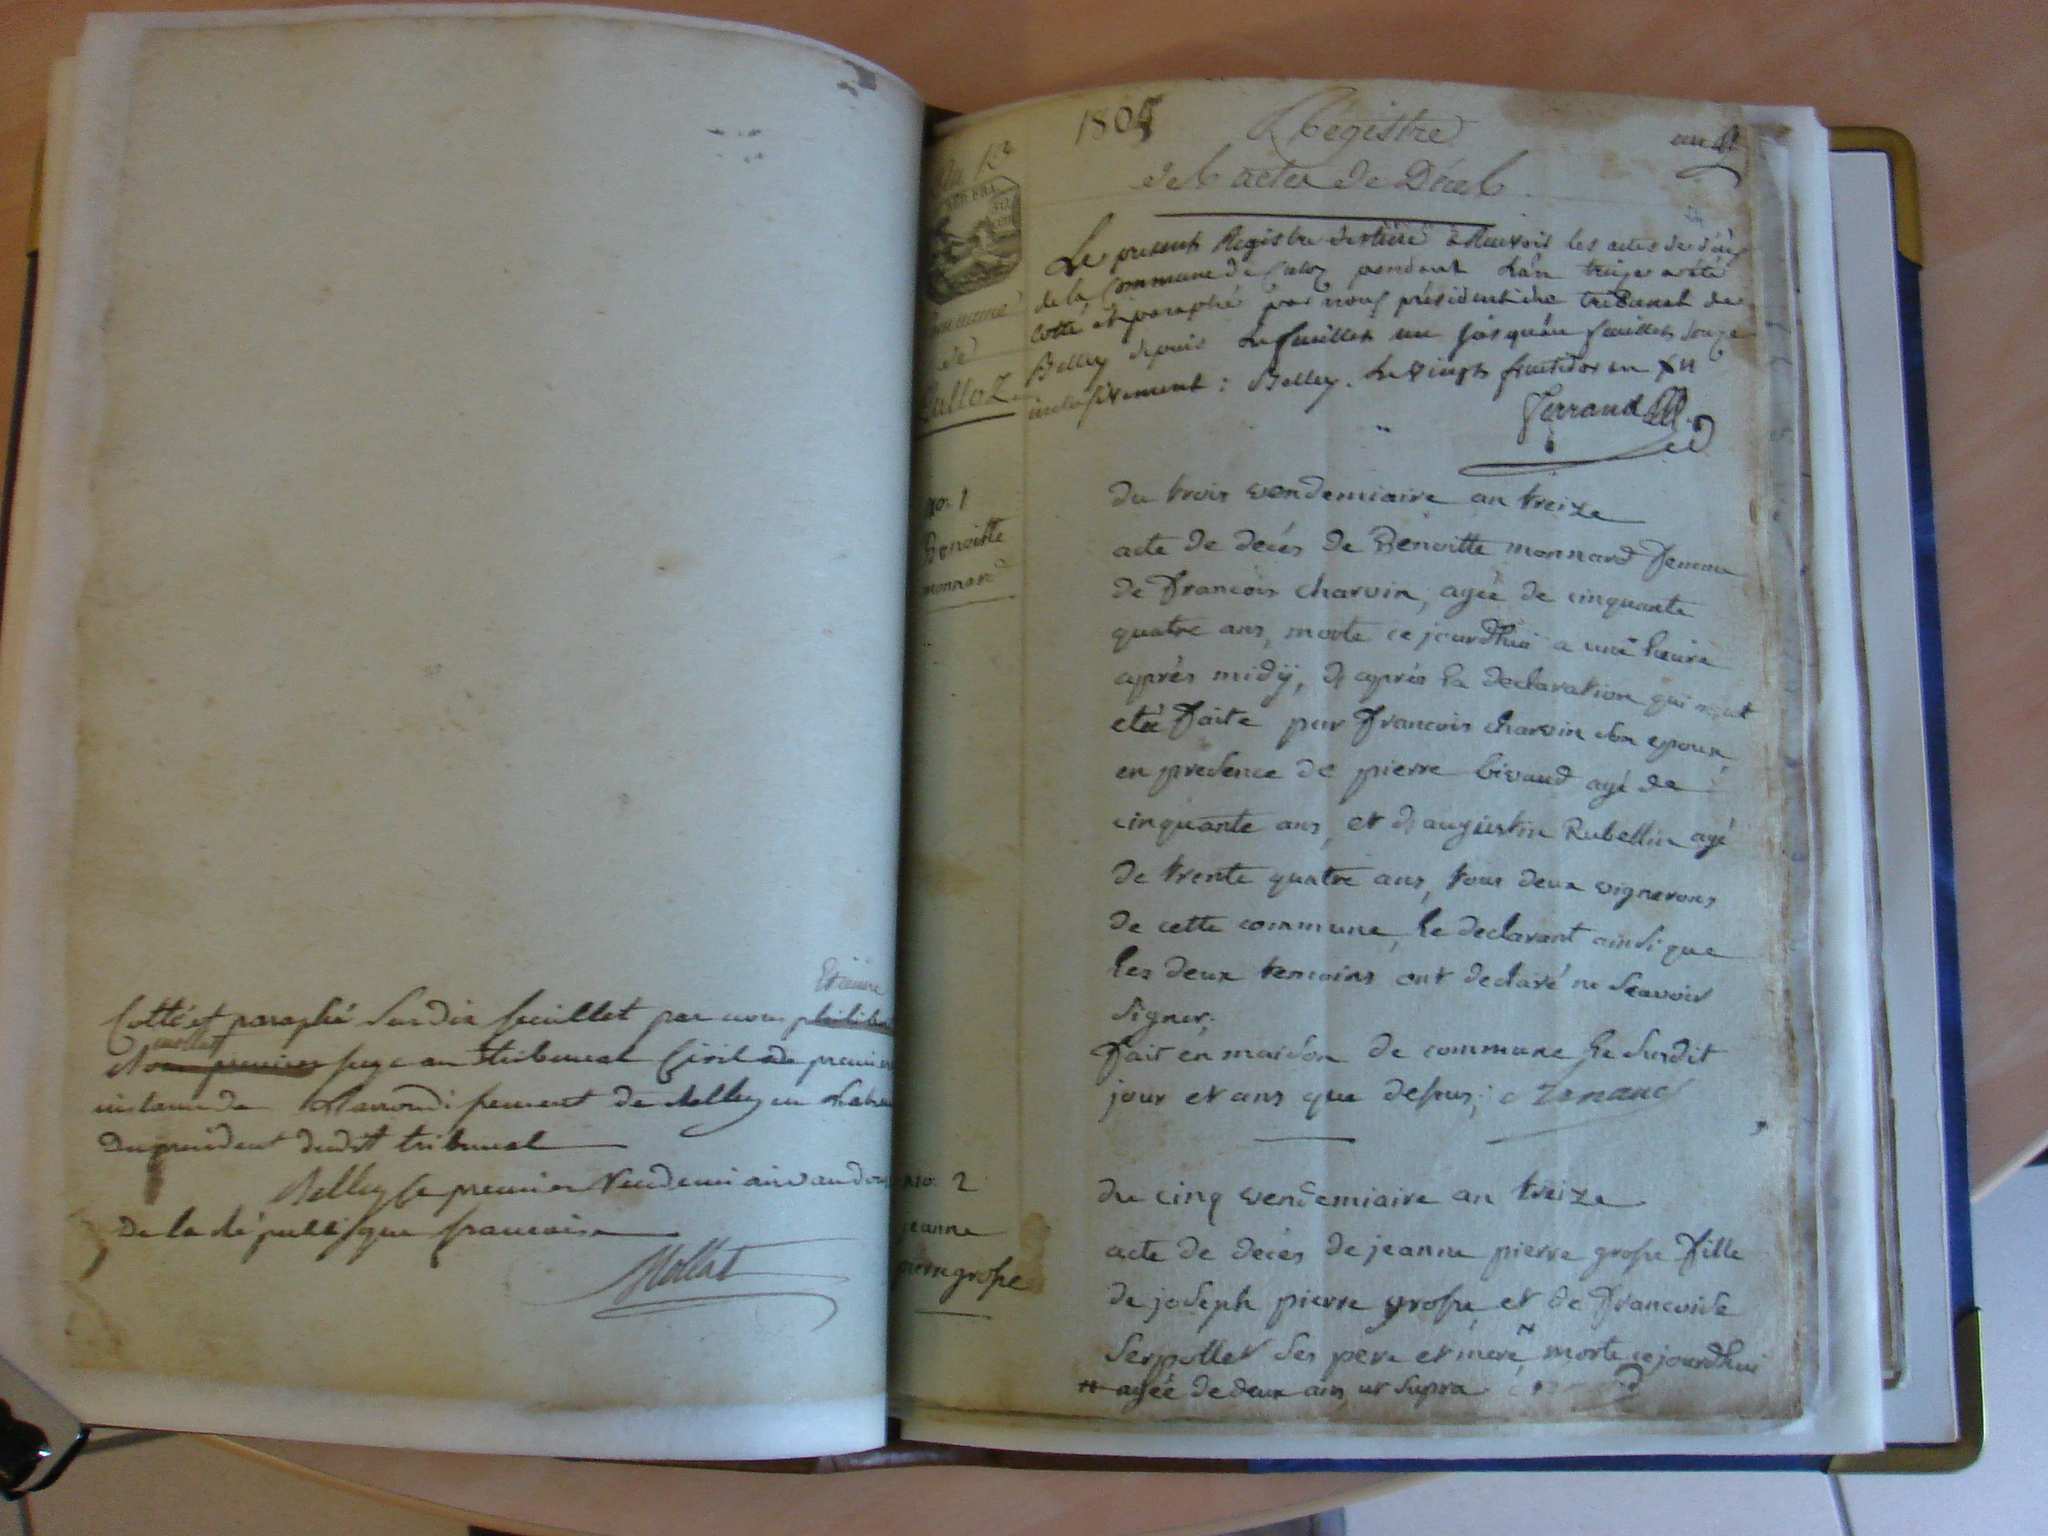 Etienne
Cotté et paraphé sur dix feuillet par nous philibert
mollet
premier juge au tribunal Civil de premiere
instance de l'arrondissement de Belley en l'absence
du president dudit tribunal
Belley le premier Vendemiaire an douze
De la républi que francaise
Mollet
1805
Registre
des actes de Décès
un
Commune
de
Culloz
Le present Registre destiné a Recevoir les actes de décès
de la Commune de Culoz pendant L'an treize a été
Cotté et paraphé par nous président du tribunal de
Belley depuis Le feuillet un jusqu'au feuillet douze
inclusivement : Belley. Le vingt fructidor an XII
Ferrand
no. 1
Benoitte
monnard
du trois vendemiaire an treize
acte de decés de Benoitte monnard femme
de francois charvin, agée de cinquante
quatre ans, morte ce jourdhui a une heure
aprés midÿ, d aprés la declaration qui m'a
eté faite par francois charvin son epoux,
en presence de pierre bivaud agé de
cinquante ans, et d augustin Rubellin agé
de trente quatre ans, tous deux vignerons
de cette commune, le declarant ainsi que
les deux temoins ont declaré ne scavoir
signer;
fait en maison de commune le susdit
jour et ans que dessus;
no. 2
jeanne
pierre grosse
du cinq vendemiaire an treize
acte de decés de jeanne pierre grosse fille
de joseph pierre grosse, et de francoise
Serpollet ses pere et mere, morte ce jourdhui
agée de deux ans, ut supra